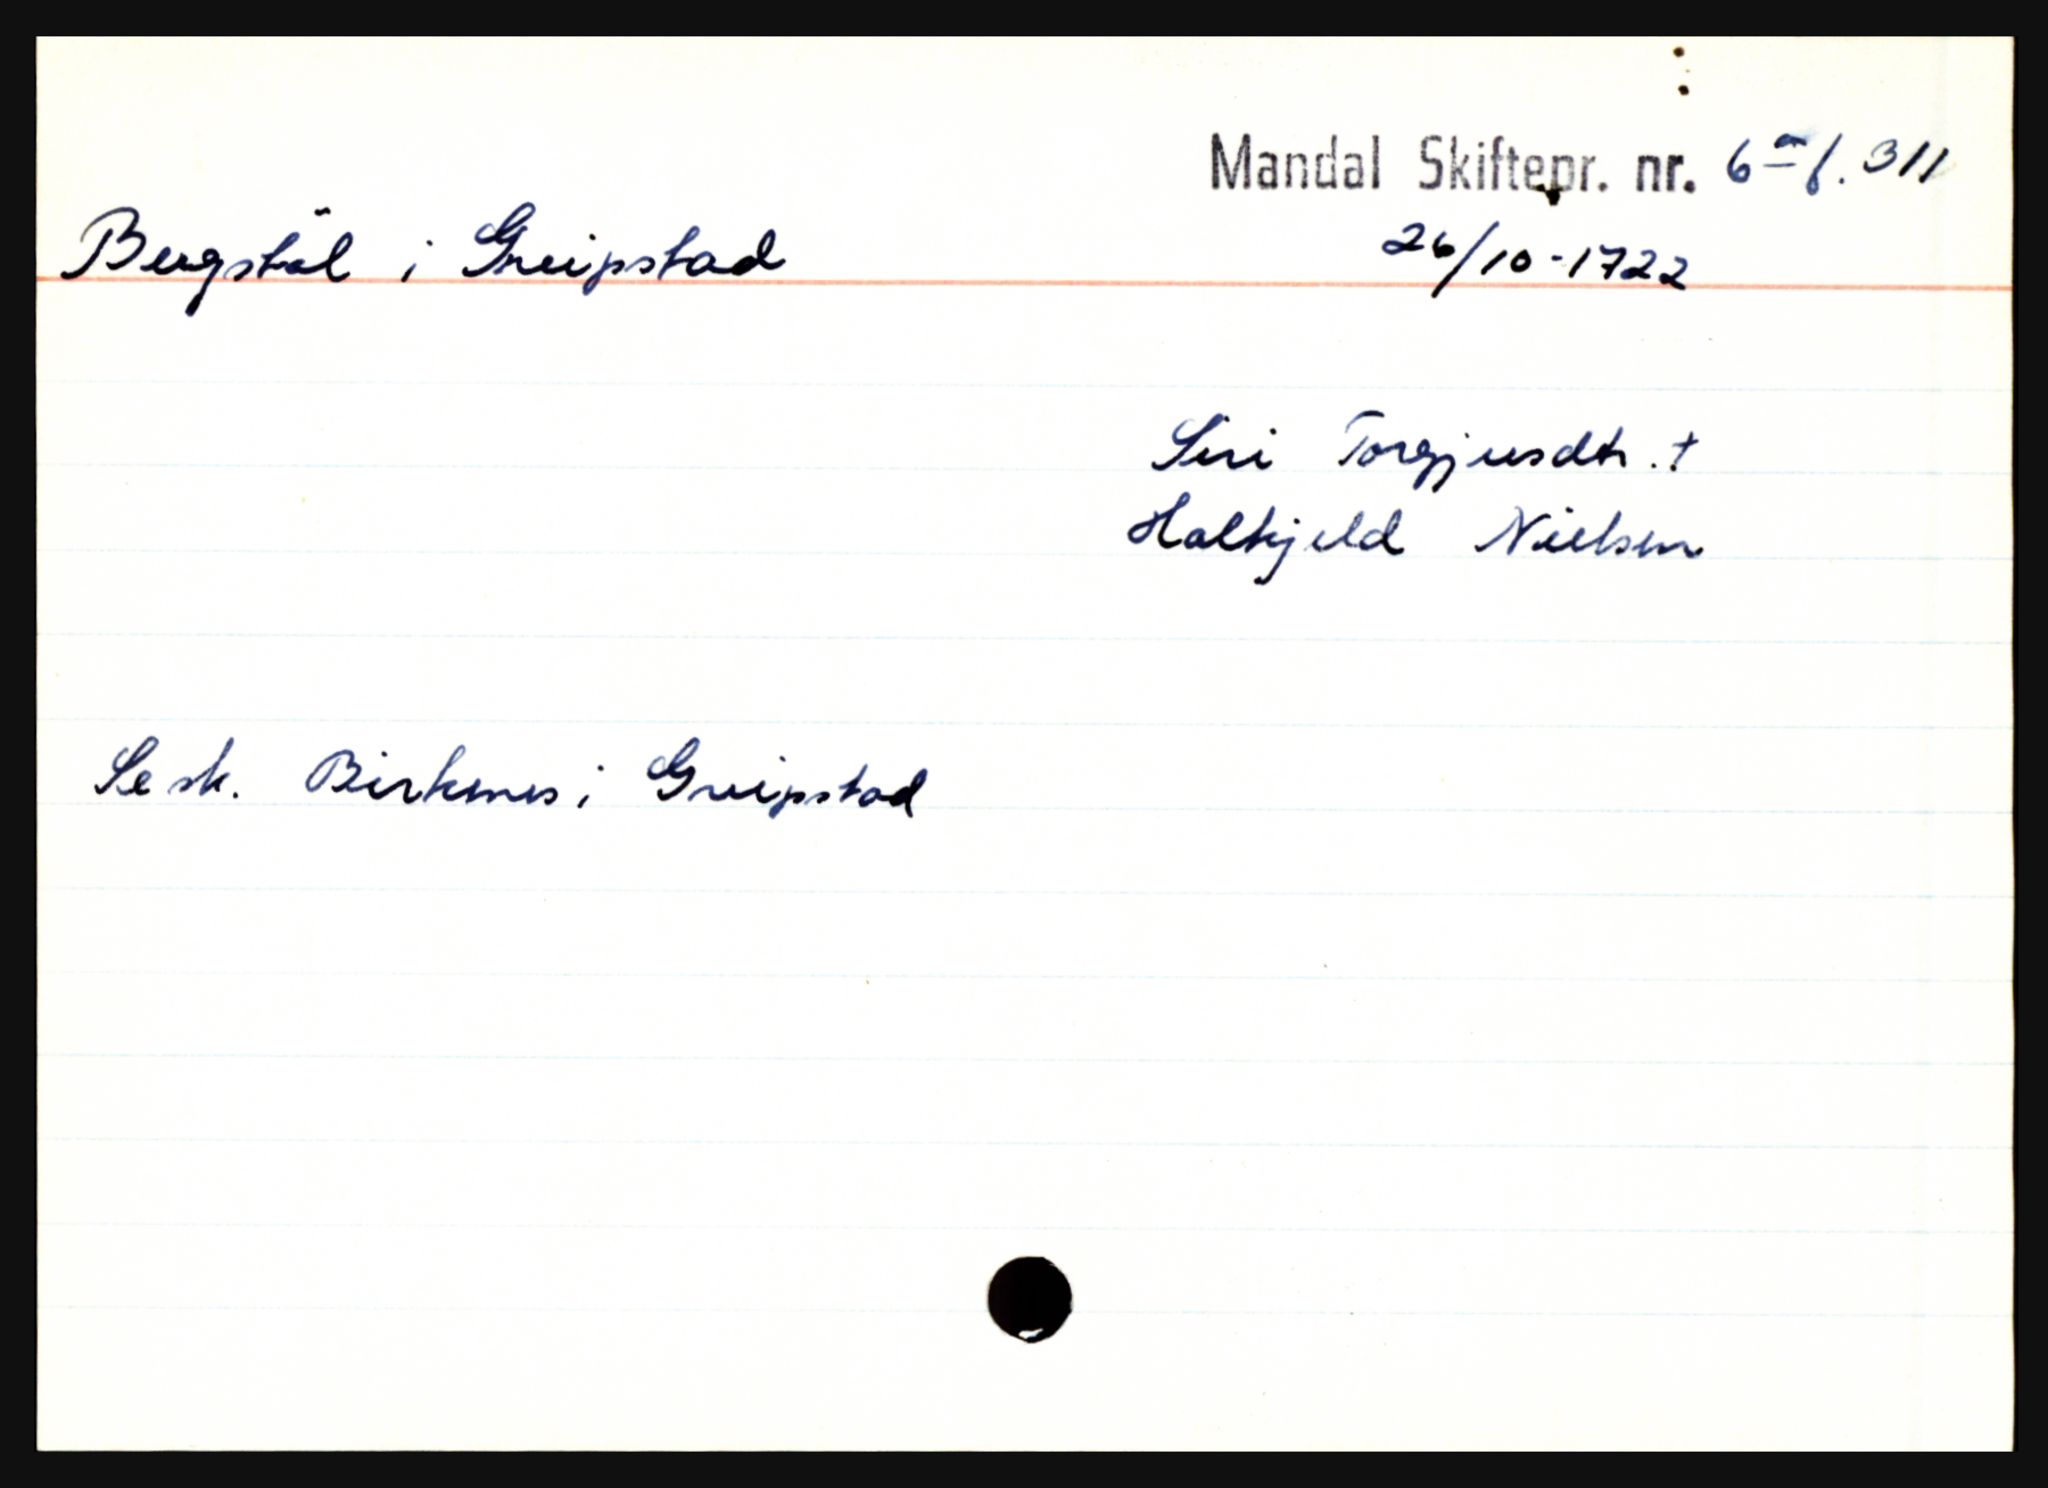 Mandal Skiftepr. nr. 6ᵃ f. 311
Bergstöl i Greipstad 26/10-1722
Siri Torgjusdtr. +
Halkjeld Nielsen
Se sk. Birkenes i Greipstad